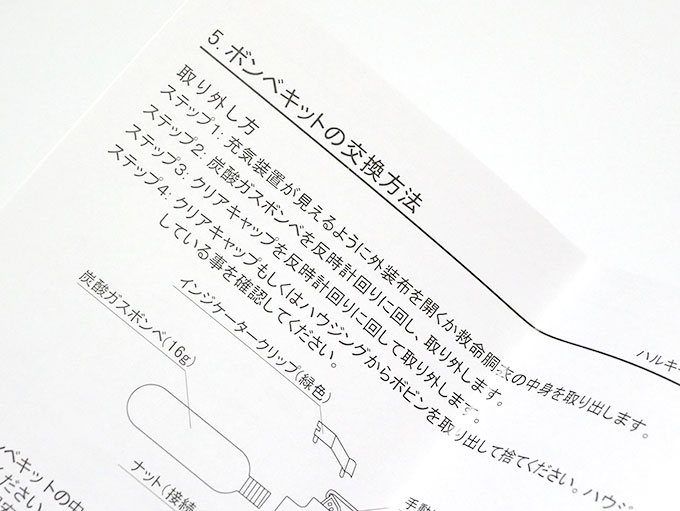 5. ボンベキットの交換方法
取り外し方
ステップ1: 充気装置が見えるように外装布を開くか救命胴衣の中身を取り出します。
ステップ2: 炭酸ガスボンベを反時計回りに回し、取り外します。
ステップ3: クリアキャップを反時計回りに回して取り外します。
ステップ4: クリアキャップもしくはハウジングからボビンを取り出して捨てください。ハウジ
している事を確認してください。
炭酸ガスボンベ(16g)
インジケータークリップ(緑色)
ハルキ
ナット(接続
手動
ベキットの中
ください